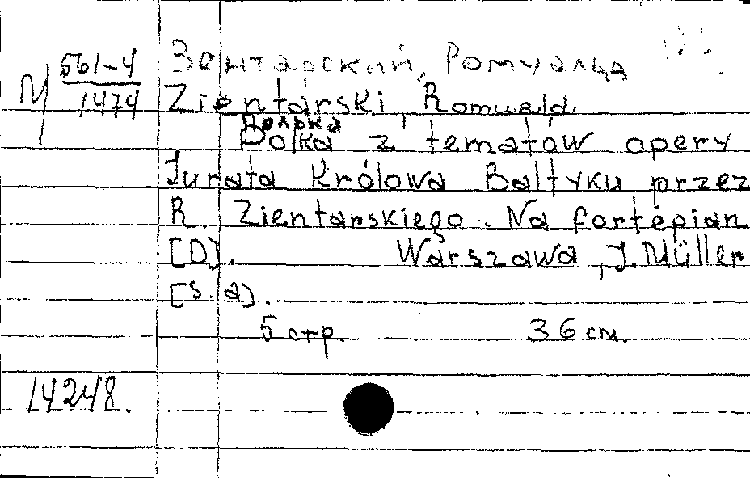 М 561-4
1474
Зентарский, Ромуальд
Zientarski, Romuald
Полька
Polka z tematów opery
Jurata Królowa Bałtyku przez
R. Zientarskiego. Na fortepian
[D]. Warszawa, J. Müller
[s. a].
5 стр. 36 см.
14248.